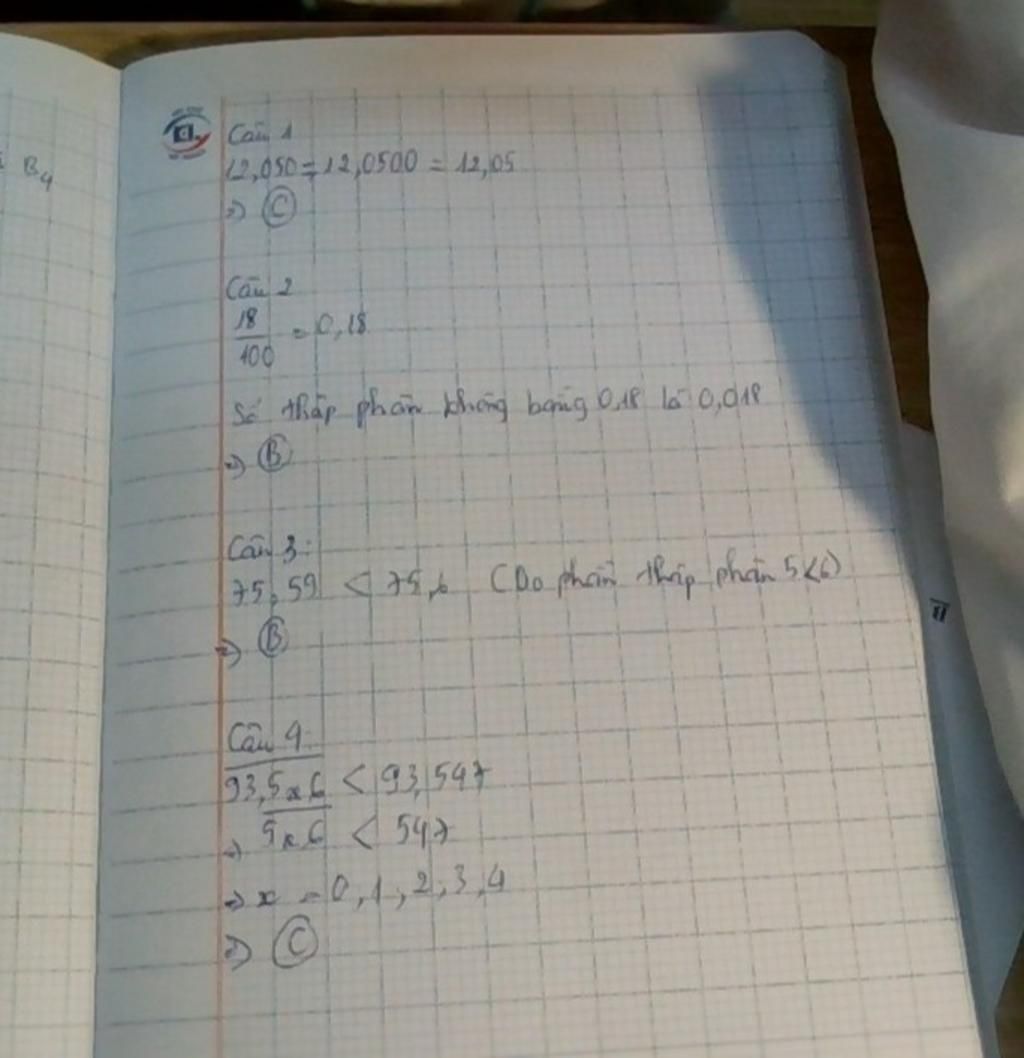 B4
Câu 1
12,050 = 12,0500 = 12,05
=> C
Câu 2
18/100 = 0,18
Số thập phân không bằng 0,18 là 0,018
=> B
Câu 3:
75,59 < 75,6 (Do phần thập phân 5<6)
=> B
Câu 4:
93,5x6 < 93,547
=> 5x6 < 547
=> x = 0,1,2,3,4
=> C